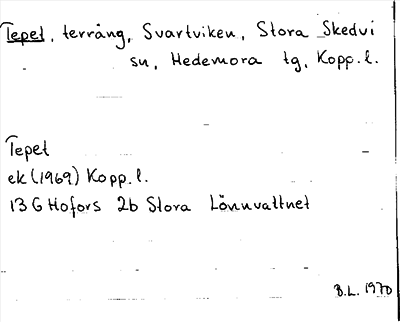 Tepet, terräng, Svartviken, Stora Skedvi
sn, Hedemora tg, Kopp.l.
Tepet
ek (1969) Kopp.l.
13 G Hofors 2b Stora Lönnvattnet
B.L. 1970